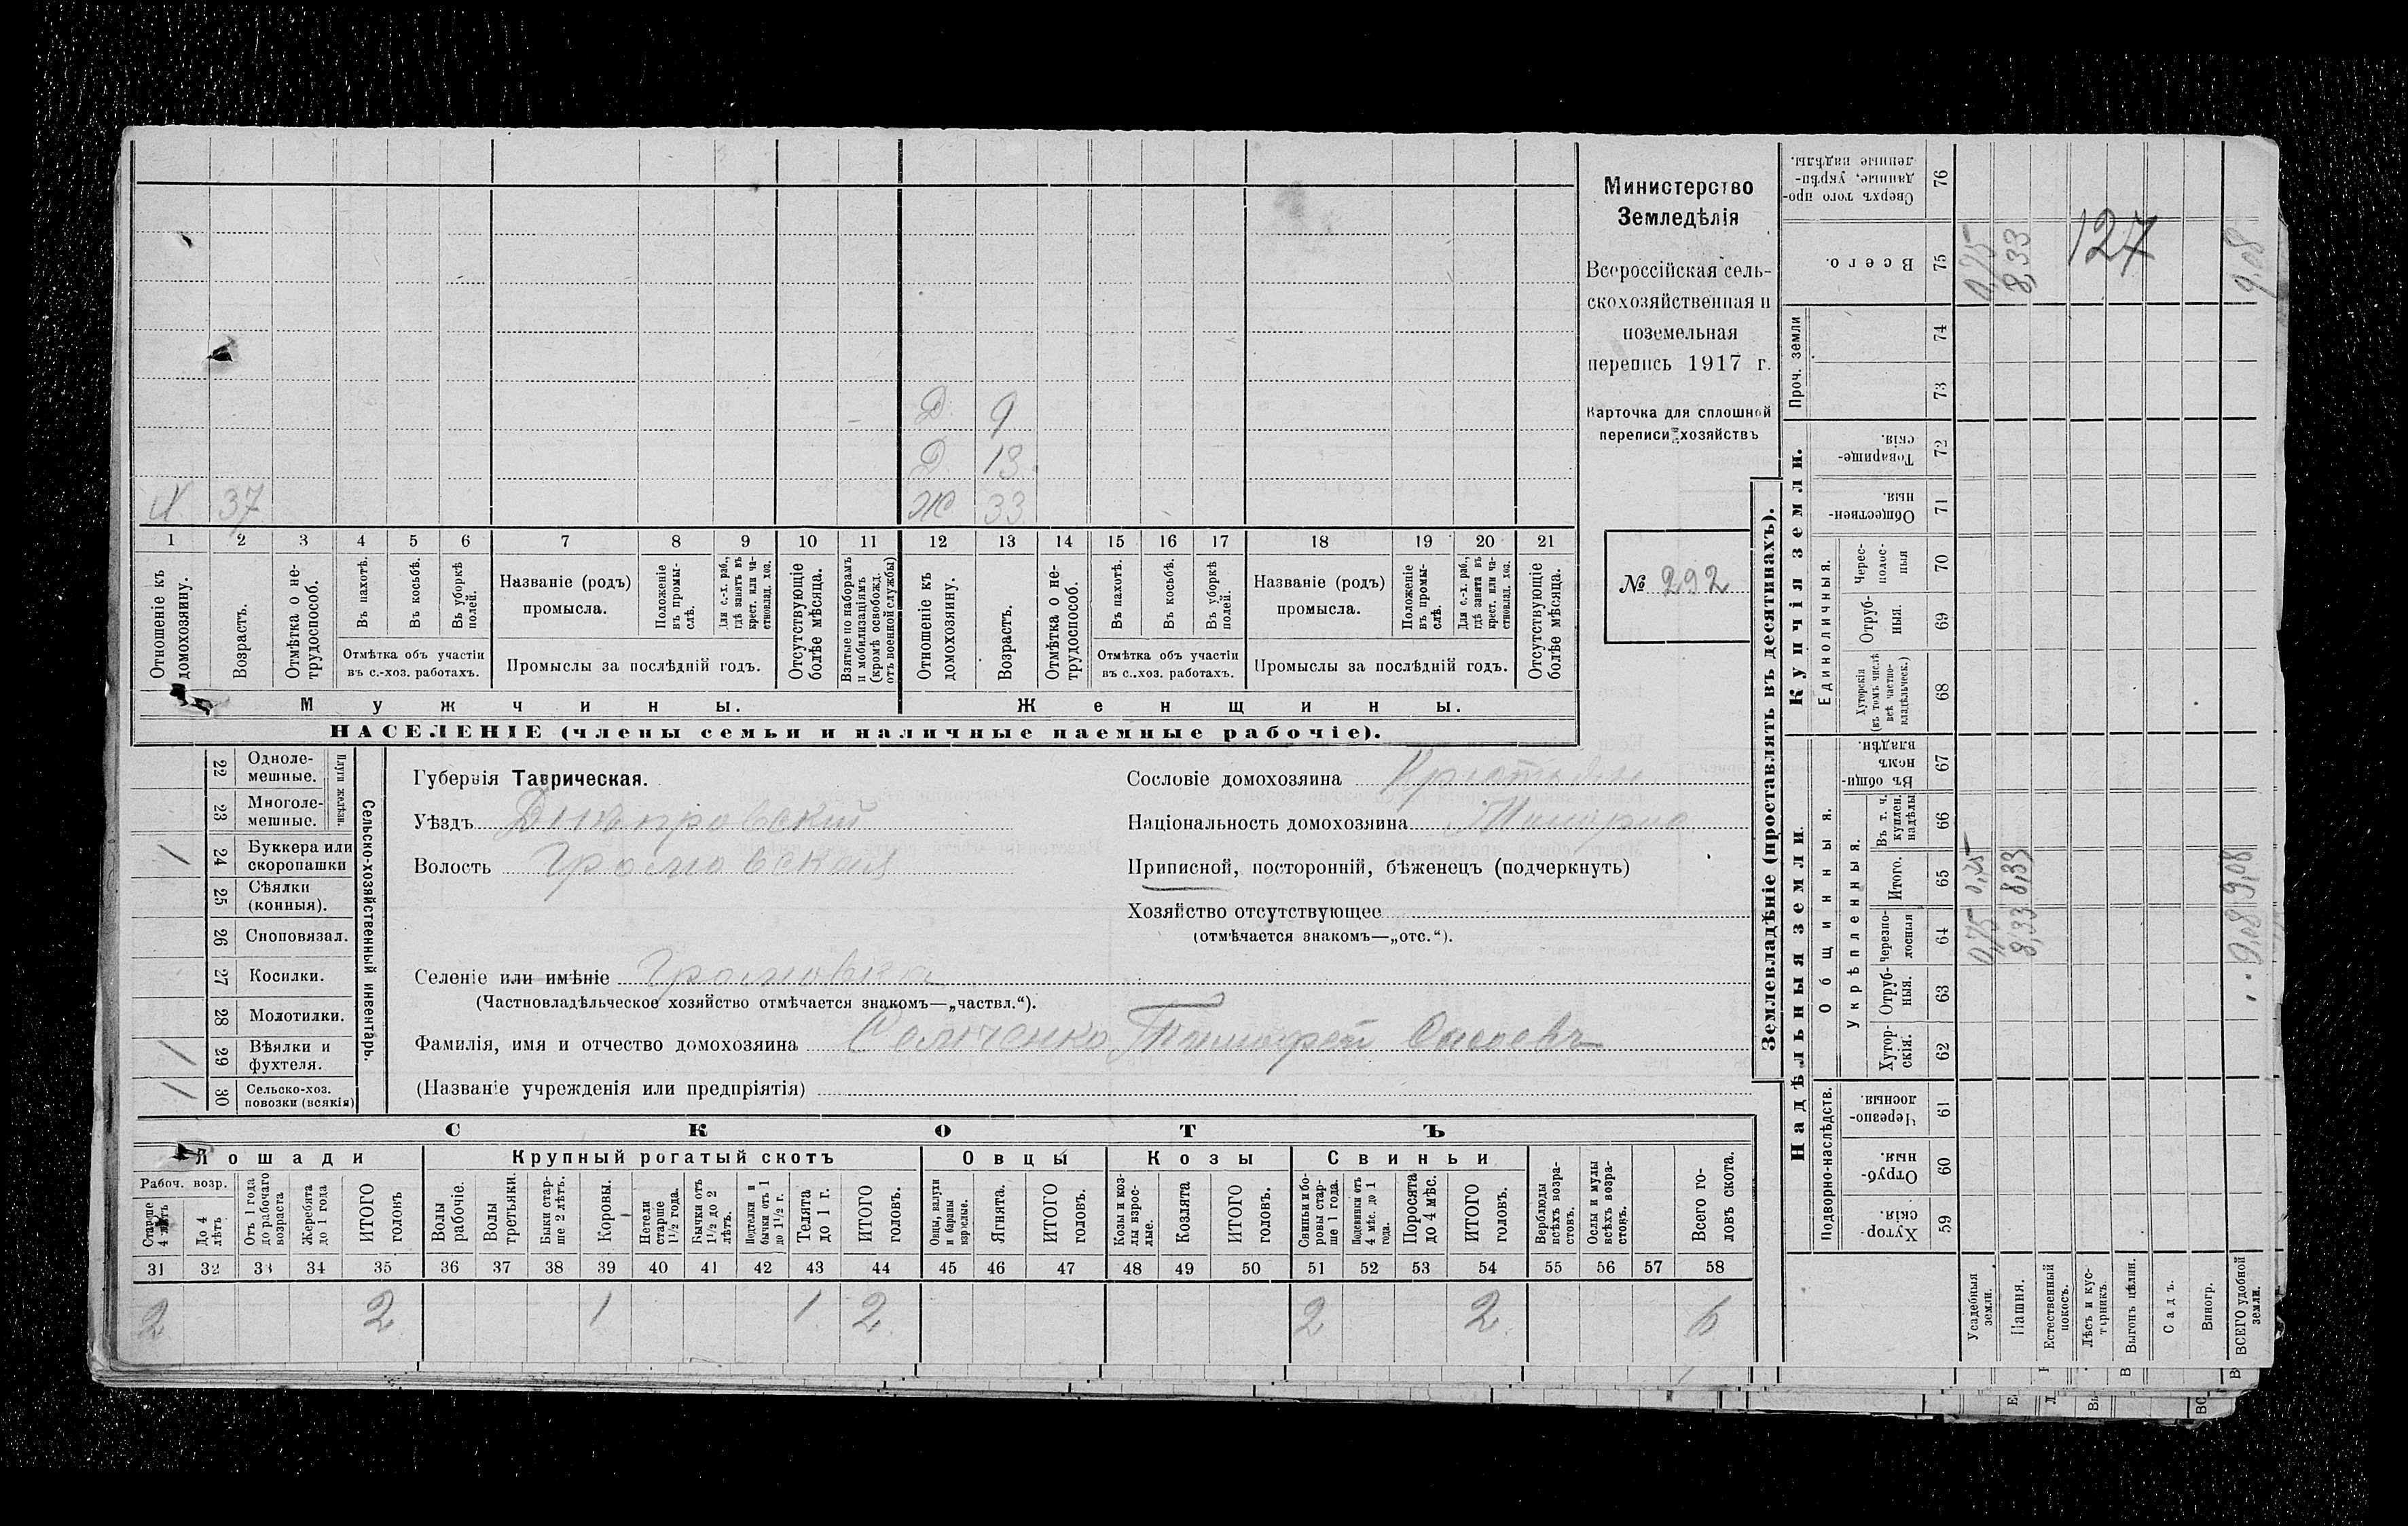 Д. 9
Д. 13.
Х 37 Ж 33
1 2 3 4 5 6 7 8 9 10 11 12 13 14 15 16 17 18 19 20 21
Отношеніе къ домохозяину.
Возрастъ.
Отмѣтка о нетрудоспособ.
Въ пахотѣ.
Въ косьбѣ.
Въ уборкѣ полей.
Отмѣтка объ участіи
въ с.-хоз. работахъ.
Названіе (родъ)
промысла.
Положеніе въ промыслѣ.
Для с.-х. раб., гдѣ занятъ въ крест. или частновлад. хоз.
Промыслы за послѣдній годъ.
Отсутствующіе болѣе мѣсяца.
Взятые по наборамъ и мобилизаціямъ (кромѣ освобожд. отъ военной службы)
Отношеніе къ домохозяину.
Возрастъ.
Отмѣтка о нетрудоспособ.
Въ пахотѣ.
Въ косьбѣ.
Въ уборкѣ полей.
Отмѣтка объ участіи
въ с..хоз. работахъ.
Названіе (родъ)
промысла.
Положеніе въ промыслѣ.
Для с.-х. раб., гдѣ занята въ крест. или частновлад. хоз.
Промыслы за послѣдній годъ.
Отсутствующіе болѣе мѣсяца.
Мужчины. Женщины.
НАСЕЛЕНІЕ (члены семьи и наличные наемные рабочіе).
Министерство
Земледѣлія
Всероссійская сель-
скохозяйственная и
поземельная
перепись 1917 г.
Карточка для сплошной
переписи хозяйствъ
№ 292
Сельско-хозяйственный инвентарь.
Плуги желѣзн.
22 Одноле-
мешные.
23 Многоле-
мешные.
1 24 Буккера или
скоропашки
25 Сѣялки
(конныя).
26 Сноповязал.
27 Косилки.
28 Молотилки.
1 29 Вѣялки и
фухтеля.
1 30 Сельско-хоз.
повозки (всякія)
Губернія Таврическая.
Уѣздъ Днѣпровскій
Волость Громовская
Селеніе или имѣніе Громовка
(Частновладѣльческое хозяйство отмѣчается знакомъ—„частвл.“).
Фамилія, имя и отчество домохозяина Тимофей
(Названіе учрежденія или предпріятія)
Сословіе домохозяина
Національность домохозяина
Приписной, посторонній, бѣженец (подчеркнуть)
Хозяйство отсутствующее
(отмѣчается знакомъ—„отс.“).
СКОТЪ
Лошади Крупный рогатый скотъ Овцы Козы Свиньи
Рабоч. возр.
Старше 4 лѣтъ
До 4 лѣтъ
Отъ 1 года до рабочаго возраста
Жеребята до 1 года
ИТОГО головъ
Волы рабочіе.
Волы третьяки.
Быки старше 2 лѣтъ.
Коровы.
Нетели старше 1½ года.
Бычки отъ 1½ до 2 лѣтъ.
Подтелки и бычки отъ 1 до 1½ г.
Телята до 1 г.
ИТОГО головъ.
Овцы, валухи и бараны взрослые.
Ягнята.
ИТОГО головъ.
Козы и козлы взрослые.
Козлята
ИТОГО головъ.
Свиньи и боровы старше 1 года.
Подсвинки отъ 4 мѣс. до 1 года.
Поросята до 4 мѣс.
ИТОГО головъ.
Верблюды всѣхъ возрастовъ.
Ослы и мулы всѣхъ возрастовъ.
Всего головъ скота.
31 32 33 34 35 36 37 38 39 40 41 42 43 44 45 46 47 48 49 50 51 52 53 54 55 56 57 58
2 2 1 1 2 2 2 6
Землевладѣніе (проставлять въ десятинахъ).
Надѣльныя земли. Купчія земли.
Подворно-наслѣдств.
Общинныя.
Укрѣпленныя.
Единоличныя.
Проч. земли
Хуторскія. 59
Отрубныя. 60
Черезполосныя 61
Хуторскія. 62
Отрубныя. 63
Черезполосныя 64
Итого. 65
Въ т. ч. куплен. надѣлы 66
Въ общинномъ владѣн. 67
Хуторскія (въ томъ числѣ всѣ частновладѣльческ.) 68
Отрубныя. 69
Чересполосныя 70
Общественныя. 71
Товарищескія. 72
73
74
Всего. 75
Сверхъ того проданные, укрѣпленные надѣлы. 76
Усадебныя земли. 0,75 0,25 0,75
Пашня. 8,33 8,33 8,33
Естественный покосъ.
Лѣсъ и кустарникъ.
Выгонъ цѣлин.
Садъ.
Виногр.
ВСЕГО удобной земли. 9.08 9,08 9.08
127